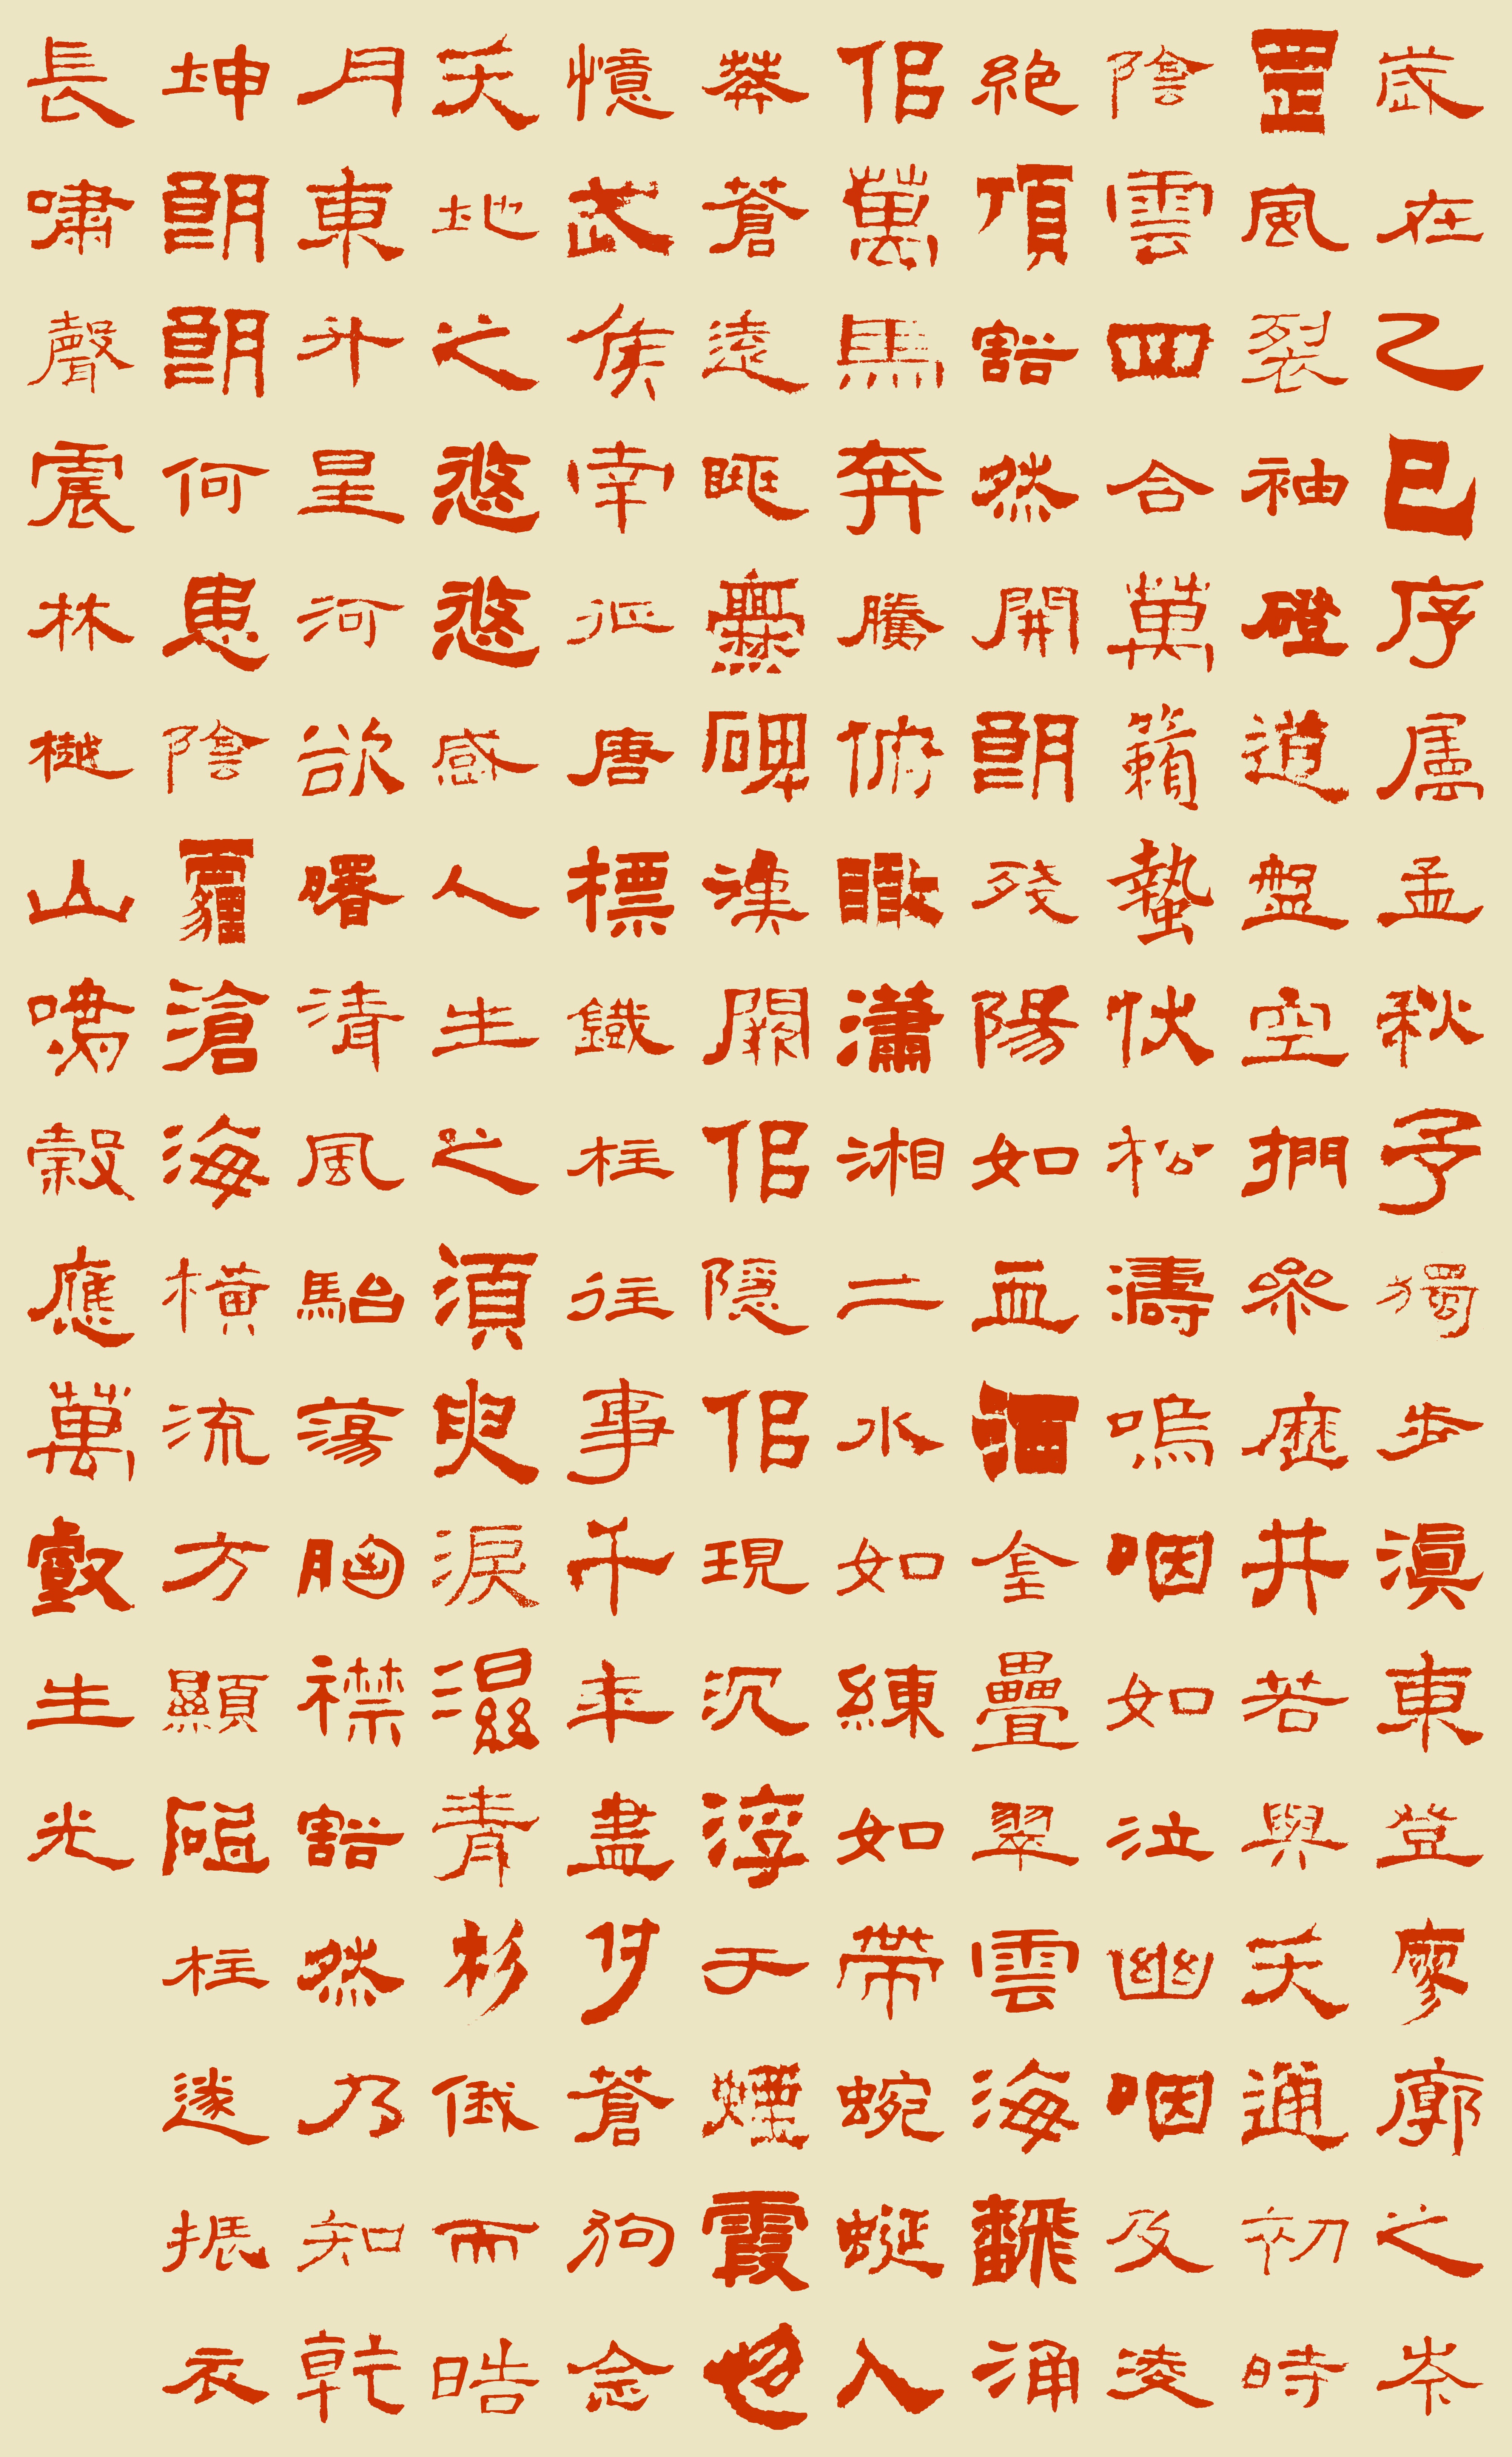 歲在乙巳序屬孟秋予獨步滇東登廖廓之岑
罡風裂袖磴道盤空捫參歷井若與天通初時
陰雲四合萬籟蟄伏松濤嗚咽如泣幽咽及淩
絕頂豁然開朗殘陽如血洒金疊翠雲海飜涌
佀萬馬奔騰俯瞰瀟湘二水如練如帶蜿蜒入
莽蒼遠眺爨碑漢闕佀隱佀現沉浮于煙霞也
憶武侯南征唐標鐵柱往事千年盡付蒼狗念
天地之悠悠感人生之須臾淚濕青衫俄而皓
月東升星河欲曙清風駘蕩胸襟豁然乃知乾
坤朗朗何患陰霾滄海橫流方顯砥柱遂振衣
長嘯聲震林樾山鳴穀應萬壑生光